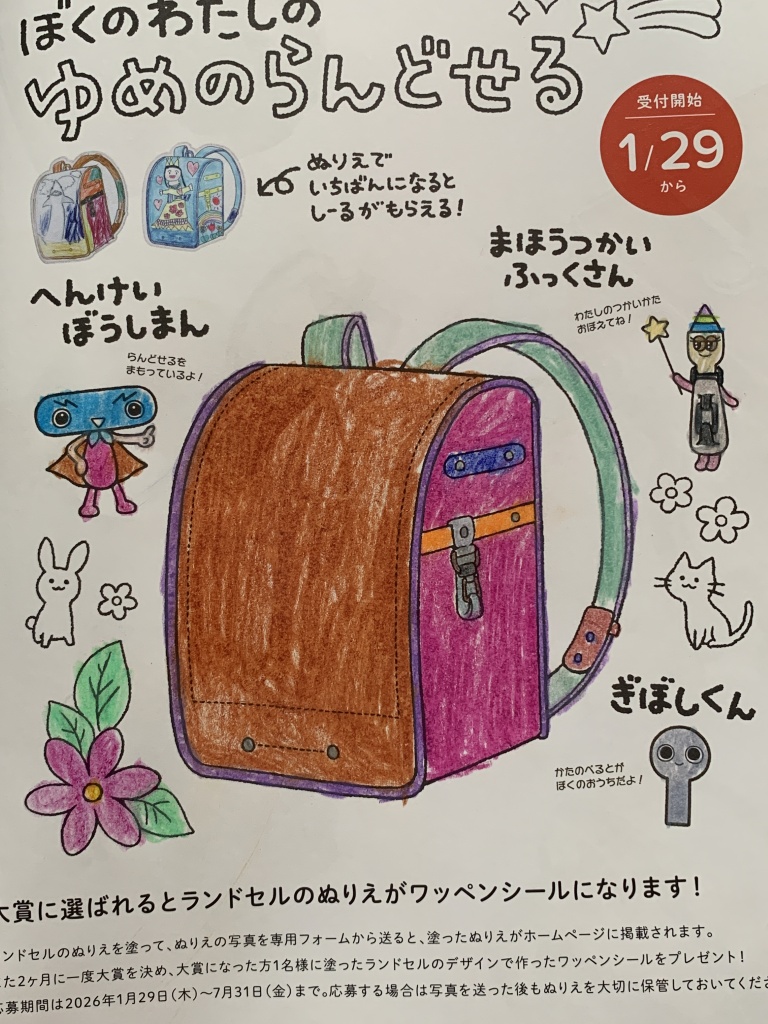 ぼくのわたしの
ゆめのらんどせる
受付開始
1/29
から
ぬりえで
いちばんになると
しーるがもらえる!
まほうつかい
ふっくさん
わたしのつかいかた
おぼえてね!
へんけい
ぼうしまん
らんどせるを
まもっているよ!
ぎぼしくん
かたのべるとが
ぼくのおうちだよ!
大賞に選ばれるとランドセルのぬりえがワッペンシールになります!
ンドセルのぬりえを塗って、ぬりえの写真を専用フォームから送ると、塗ったぬりえがホームページに掲載されます。
た2ヶ月に一度大賞を決め、大賞になった方1名様に塗ったランドセルのデザインで作ったワッペンシールをプレゼント!
応募期間は2026年1月29日(木)〜7月31日(金)まで。応募する場合は写真を送った後もぬりえを大切に保管しておいてくださ